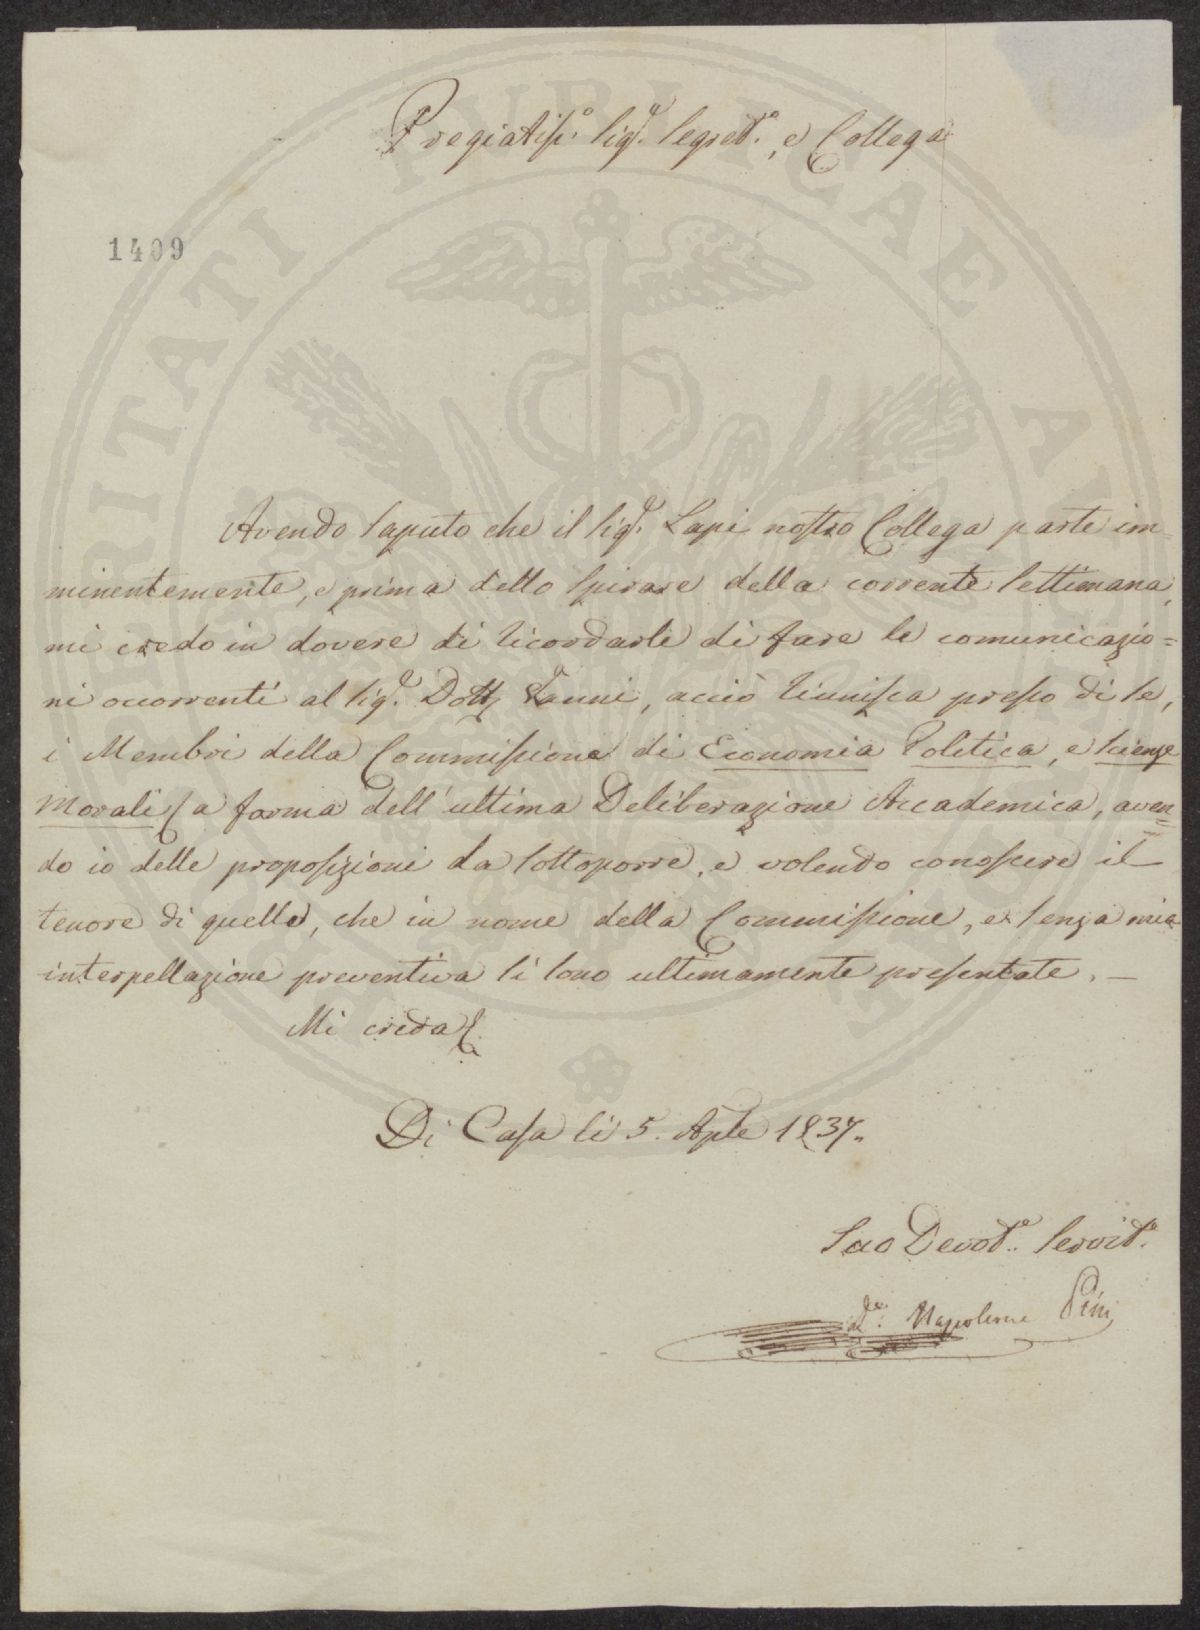 Pregiatiss.º Sig.r Segret.º, e Collega
1409
Avendo saputo che il Sig.r Lapi nostro Collega parte im=
minentemente, e prima dello spirare della corrente settimana,
mi credo in dovere di ricordarle di fare le comunicazio=
ni occorrenti al Sig.r Dott. Vanni, acciò riunisca presso di se,
i Membri della Commissione di Economia Politica, e Scienze
Morali, a forma dell'ultima Deliberazione Accademica, aven=
do io delle proposizioni da sottoporre, e volendo conoscere il
tenore di quelle, che in nome della Commissione, e senza mia
interpellazione preventiva si sono ultimamente presentate. —
Mi creda
Di Casa li 5. Aple 1837.
Suo Devot.º Servit.e
Napoleone Pini
VERITATI PUBLICAE